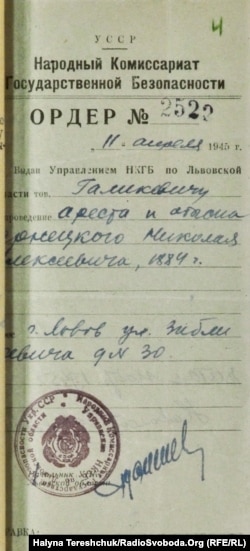 4
УССР
Народный Комиссариат
Государственной Безопасности
ОРДЕР № 2529
11 апреля 1945 г.
Выдан Управлением НКГБ по Львовской
ласти тов. Галиковичу
проведение ареста и обыска
онецкого Николая
лексеевича, 1884 г.
г. Львов ул. Зибли
евича д № 30.
Народный Комиссариат
Начальник УНКГБ
РАВКА:
Halyna Tereshchuk/RadioSvoboda.Org (RFE/RL)